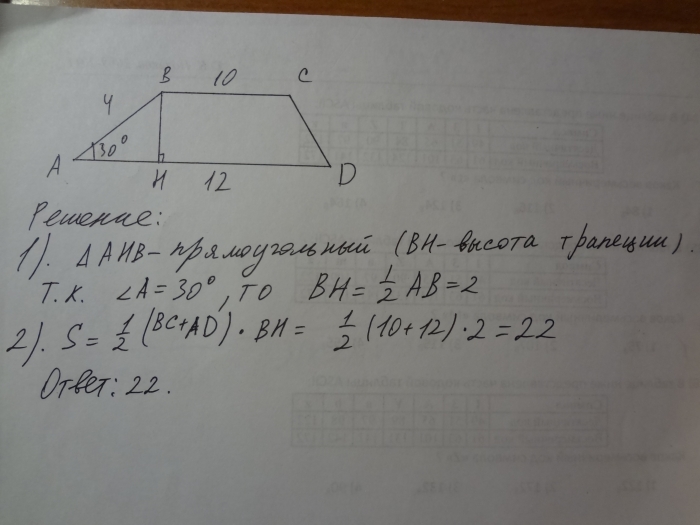 B 10 C
4
A 30° H 12 D
Решение:
1). ΔAHB - прямоугольный (BH - высота трапеции).
Т.к. ∠A = 30°, то BH = 1/2 AB = 2
2). S = 1/2 (BC+AD) · BH = 1/2 (10+12) · 2 = 22
Ответ: 22.